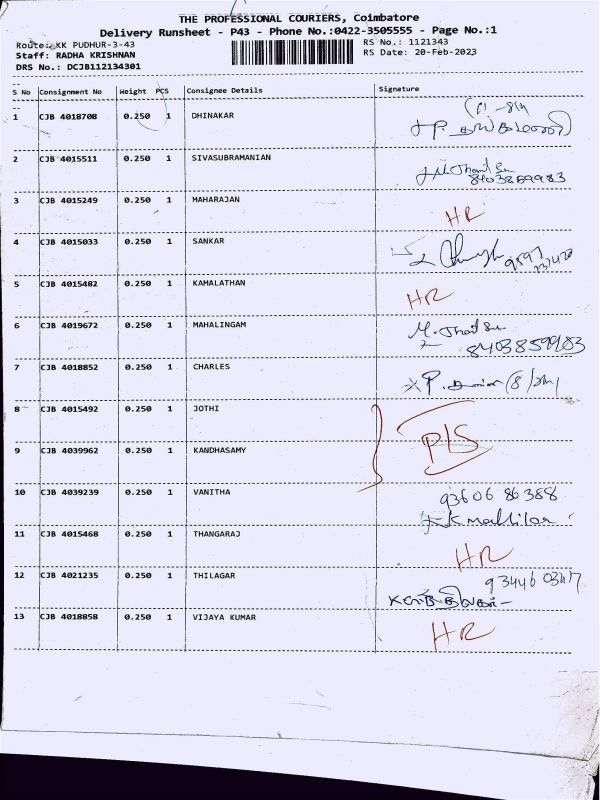 THE PROFESSIONAL COURIERS, Coimbatore
Delivery Runsheet - P43 - Phone No.:0422-3505555 - Page No.:1
Route: KK PUDHUR-3-43 RS No.: 1121343
Staff: RADHA KRISHNAN RS Date: 20-Feb-2023
DRS No.: DCJB112134301
S No Consignment No Weight PCS Consignee Details Signature
1 CJB 4018708 0.250 1 DHINAKAR
2 CJB 4015511 0.250 1 SIVASUBRAMANIAN
3 CJB 4015249 0.250 1 MAHARAJAN HR
4 CJB 4015033 0.250 1 SANKAR
5 CJB 4015482 0.250 1 KAMALATHAN HR
6 CJB 4019672 0.250 1 MAHALINGAM
8403859983
7 CJB 4018852 0.250 1 CHARLES
8 CJB 4015492 0.250 1 JOTHI
P/S
9 CJB 4039962 0.250 1 KANDHASAMY
10 CJB 4039239 0.250 1 VANITHA 93606 86388
11 CJB 4015468 0.250 1 THANGARAJ HR
12 CJB 4021235 0.250 1 THILAGAR
13 CJB 4018858 0.250 1 VIJAYA KUMAR HR